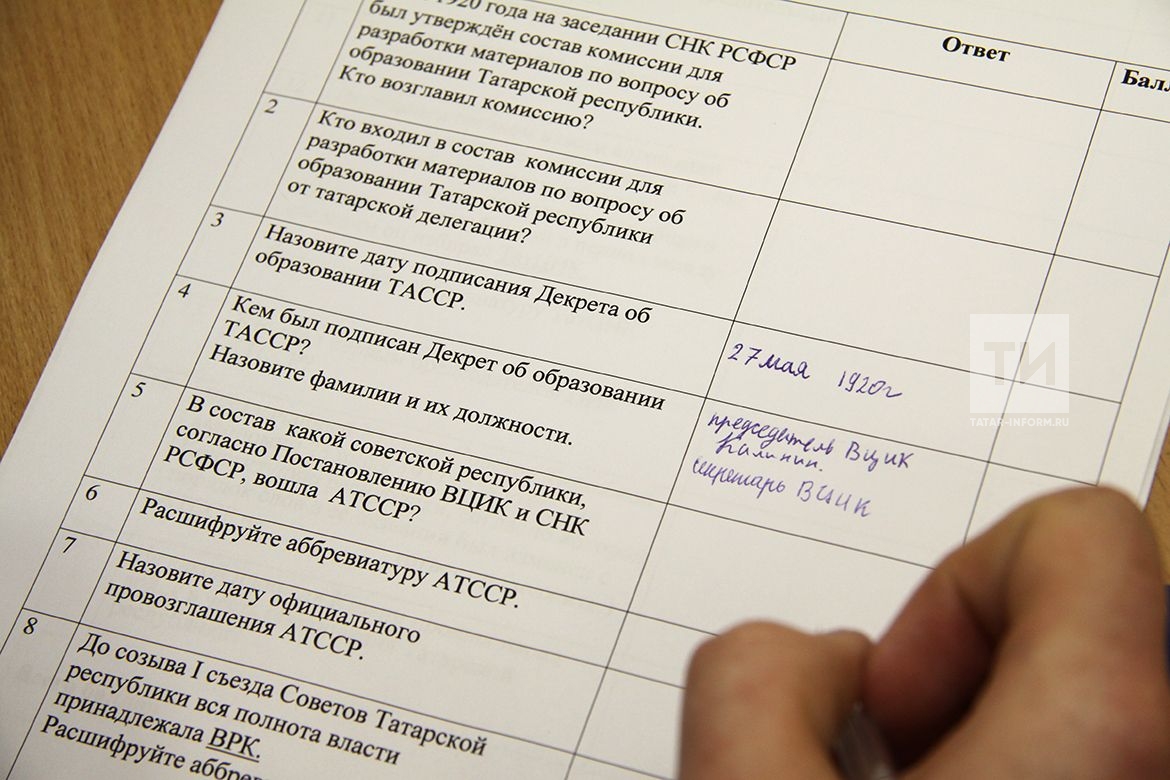 1920 года на заседании СНК РСФСР
был утверждён состав комиссии для
разработки материалов по вопросу об
образовании Татарской республики.
Кто возглавил комиссию?
Ответ
Балл
2
Кто входил в состав комиссии для
разработки материалов по вопросу об
образовании Татарской республики
от татарской делегации?
3
Назовите дату подписания Декрета об
образовании ТАССР.
27 мая 1920г
4
Кем был подписан Декрет об образовании
ТАССР?
Назовите фамилии и их должности.
председатель ВЦИК
Калинин.
секретарь ВЦИК
5
В состав какой советской республики,
согласно Постановлению ВЦИК и СНК
РСФСР, вошла АТССР?
6
Расшифруйте аббревиатуру АТССР.
7
Назовите дату официального
провозглашения АТССР.
8
До созыва I съезда Советов Татарской
республики вся полнота власти
принадлежала ВРК.
Расшифруйте аббрев
ТИ
TATAR-INFORM.RU